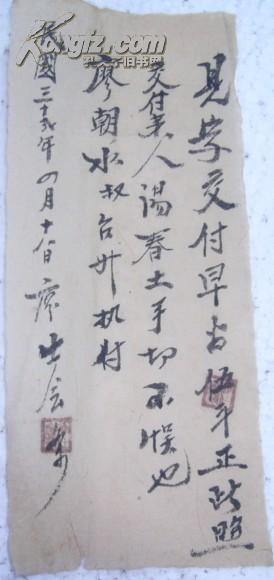 見字交付早谷伍平正此照
交付來人湯春土手切不悞也
廖朝水叔台升机对
民國三十弍年四月十八日廖生
Kongfz.com
孔夫子旧书网